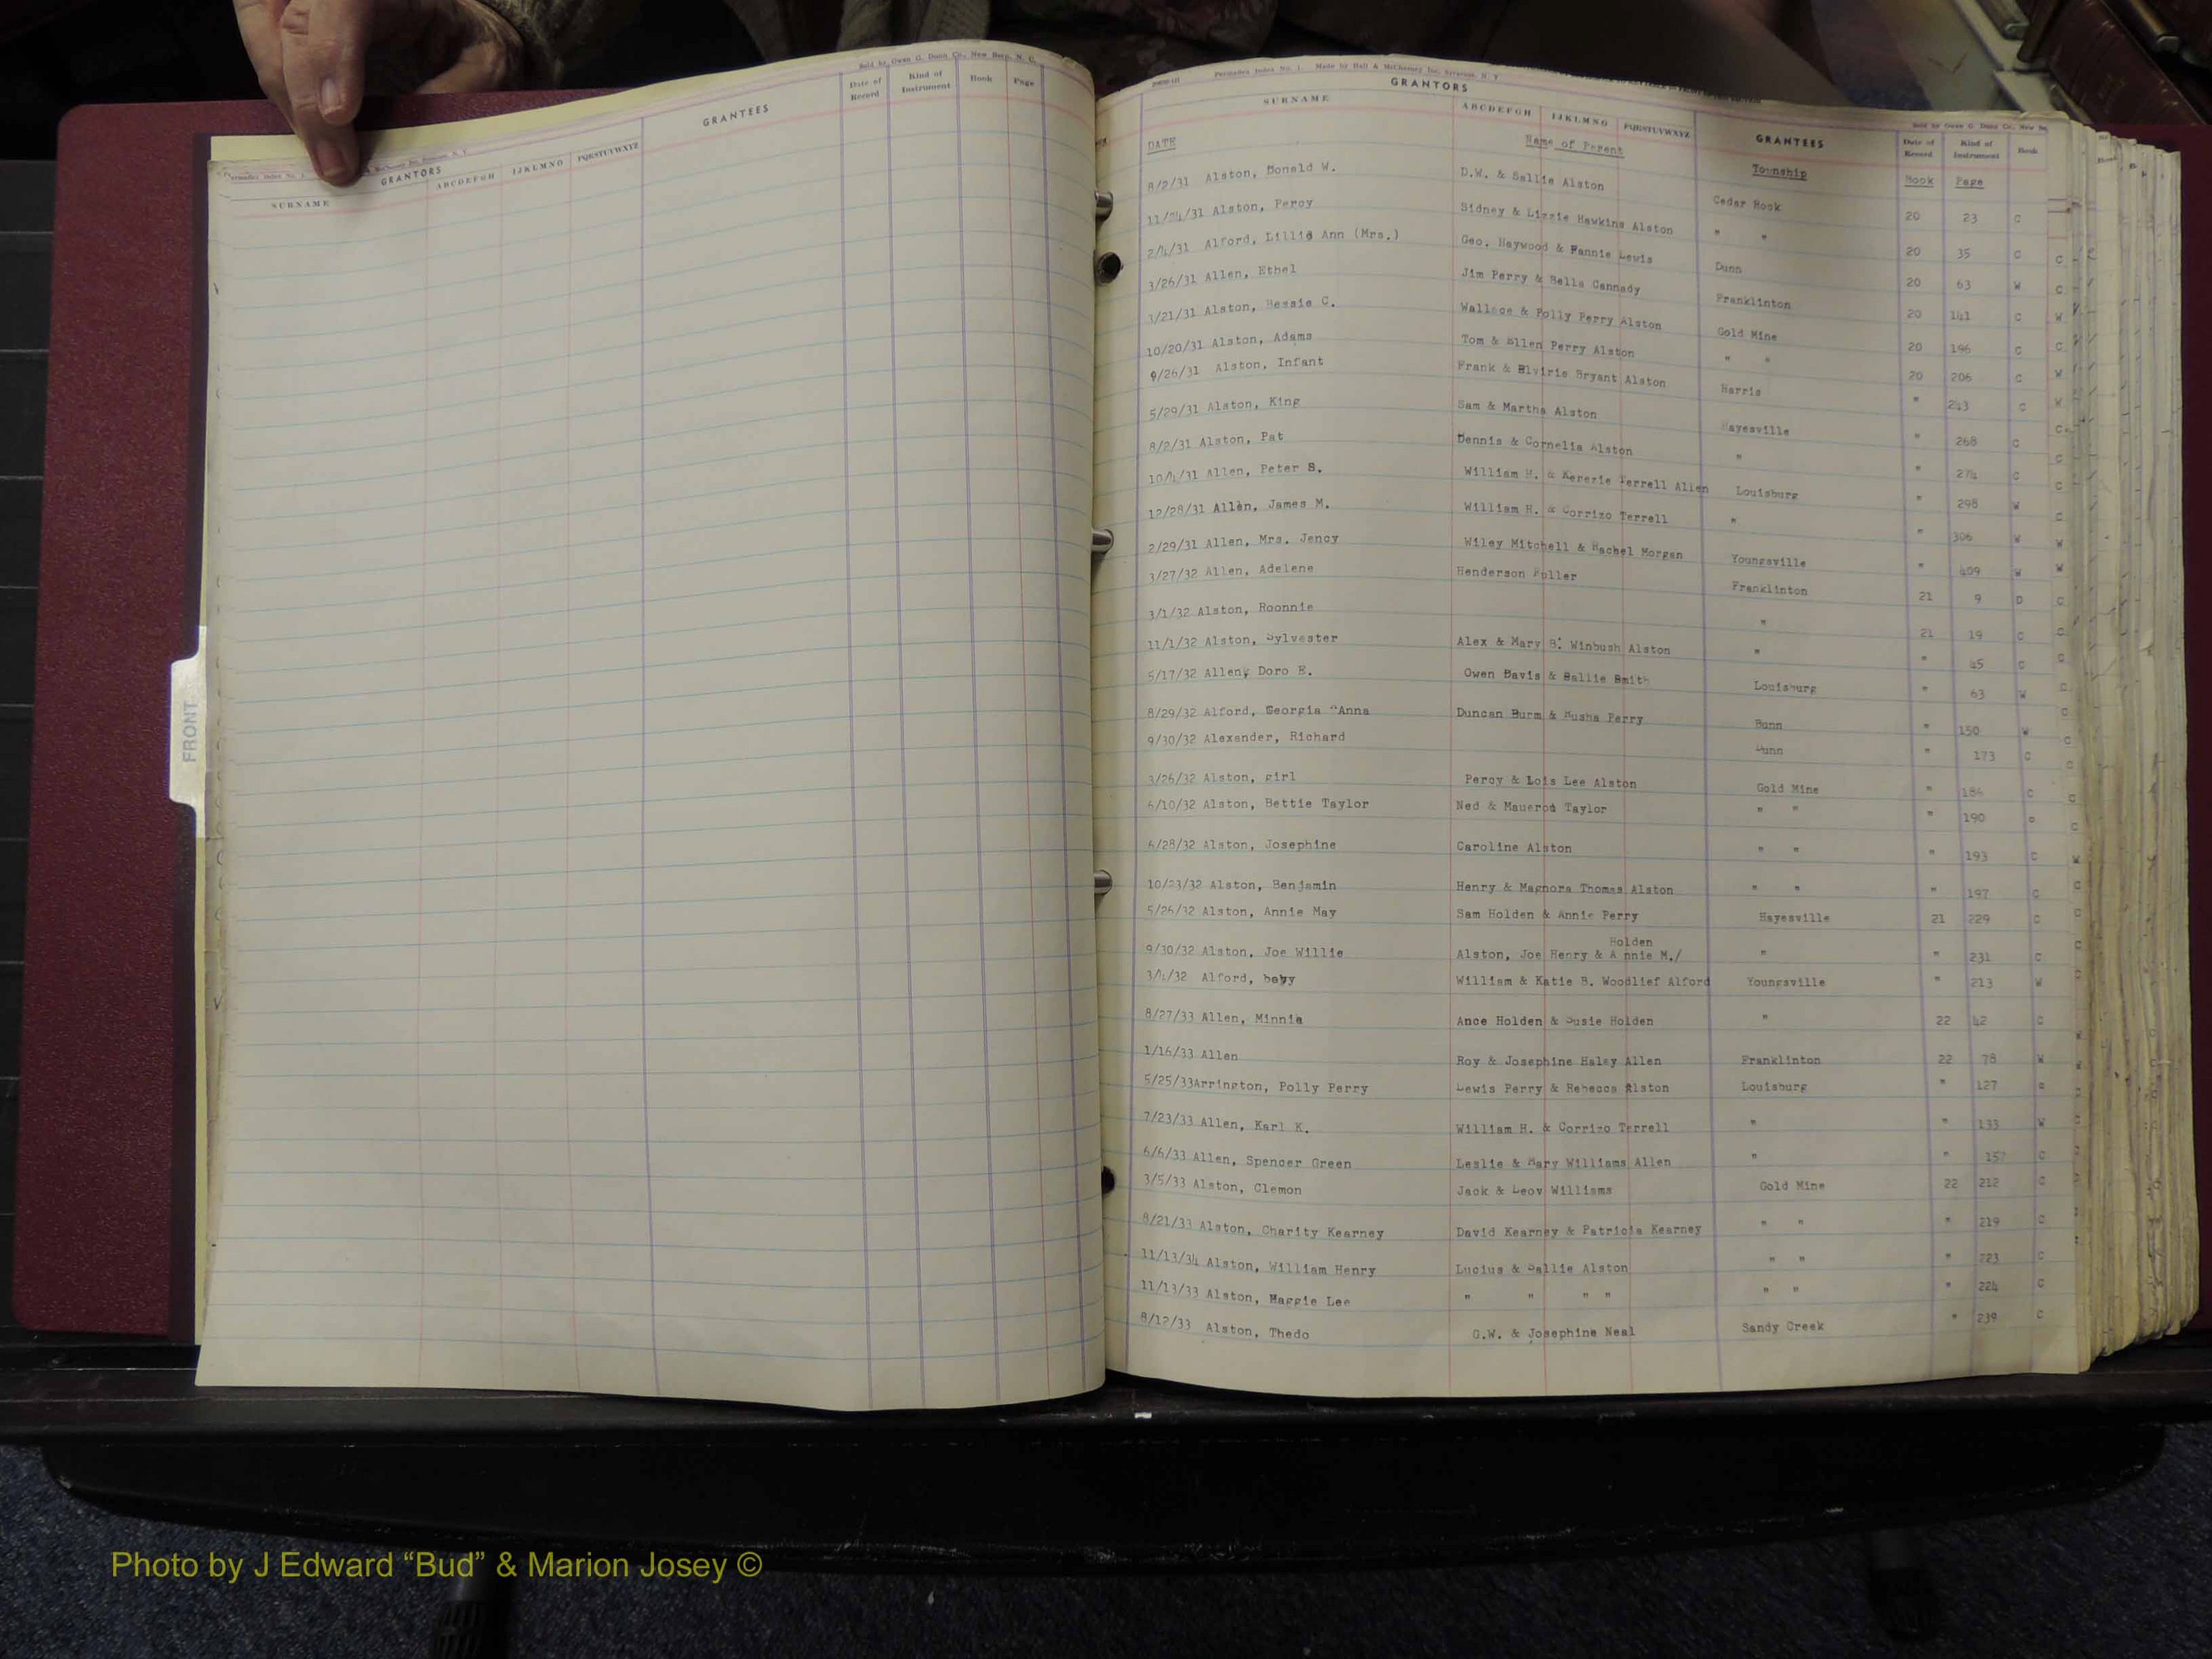 Sold by Owen G. Dunn Co., New Bern, N. C.
GRANTORS
GRANTEES
Date of Record
Kind of Instrument
Book
Page
SURNAME
ABCDEFGH
IJKLMNO
PQRSTUVWXYZ
FRONT
Permadex Index No. 1. Made by Hall & McChesney Inc. Syracuse, N. Y.
GRANTORS
Sold by Owen G. Dunn Co., New
SURNAME ABCDEFGH IJKLMNO PQRSTUVWXYZ GRANTEES Date of Record Kind of Instrument Book
DATE Name of Parent Township Book Page
8/2/31 Alston, Donald W. D.W. & Sallie Alston Cedar Rock 20 23 C
11/24/31 Alston, Percy Sidney & Lizzie Hawkins Alston " " 20 35 C
2/4/31 Alford, Lillie Ann (Mrs.) Geo. Haywood & Fannie Lewis Dunn 20 63 W
3/26/31 Allen, Ethel Jim Perry & Bella Cannady Franklinton 20 141 C
3/21/31 Alston, Bessie C. Wallace & Polly Perry Alston Gold Mine 20 196 C
10/20/31 Alston, Adams Tom & Ellen Perry Alston " " 20 206 C
9/26/31 Alston, Infant Frank & Elvirie Bryant Alston Harris " 243 C
5/29/31 Alston, King Sam & Martha Alston Hayesville " 268 C
8/2/31 Alston, Pat Dennis & Cornelia Alston " " 274 C
10/4/31 Allen, Peter S. William H. & Kerezie Terrell Allen Louisburg " 298 W
12/28/31 Allen, James M. William H. & Corrizo Terrell " " 306 W
2/29/31 Allen, Mrs. Jency Wiley Mitchell & Rachel Morgan Youngsville " 409 W
3/27/32 Allen, Adelene Henderson Fuller Franklinton 21 9
3/1/32 Alston, Roonnie " 21 19 C
11/1/32 Alston, Sylvester Alex & Mary B. Winbush Alston " " 45 C
5/17/32 Allen, Doro E. Owen Davis & Sallie Smith Louisburg " 63 W
8/29/32 Alford, Georgia "Anna Duncan Burm & Susha Perry Bunn " 150 W
9/30/32 Alexander, Richard Dunn " 173 C
3/26/32 Alston, girl Percy & Lois Lee Alston Gold Mine " 184 C
6/10/32 Alston, Bettie Taylor Ned & Mauerod Taylor " " " 190
4/28/32 Alston, Josephine Caroline Alston " " " 193 C
10/23/32 Alston, Benjamin Henry & Magnora Thomas Alston " " " 197 C
5/26/32 Alston, Annie May Sam Holden & Annie Perry Hayesville 21 229 C
Holden
9/30/32 Alston, Joe Willie Alston, Joe Henry & Annie M./ " " 231 C
3/4/32 Alford, baby William & Katie B. Woodlief Alford Youngsville " 213 W
8/27/33 Allen, Minnie Ance Holden & Susie Holden " 22 42 C
1/16/33 Allen Roy & Josephine Haley Allen Franklinton 22 78 W
5/25/33 Arrington, Polly Perry Lewis Perry & Rebecca Alston Louisburg " 127
7/23/33 Allen, Karl K. William H. & Corrizo Terrell " " 133 W
6/6/33 Allen, Spencer Green Leslie & Mary Williams Allen " " 157 C
3/5/33 Alston, Clemon Jack & Leov Williams Gold Mine 22 212 C
8/21/33 Alston, Charity Kearney David Kearney & Patricia Kearney " " " 219 C
11/13/34 Alston, William Henry Lucius & Sallie Alston " " " 223 C
11/13/33 Alston, Maggie Lee " " " " " " " 224 C
8/12/33 Alston, Thedo G.W. & Josephine Neal Sandy Creek " 239 C
Photo by J Edward “Bud” & Marion Josey ©